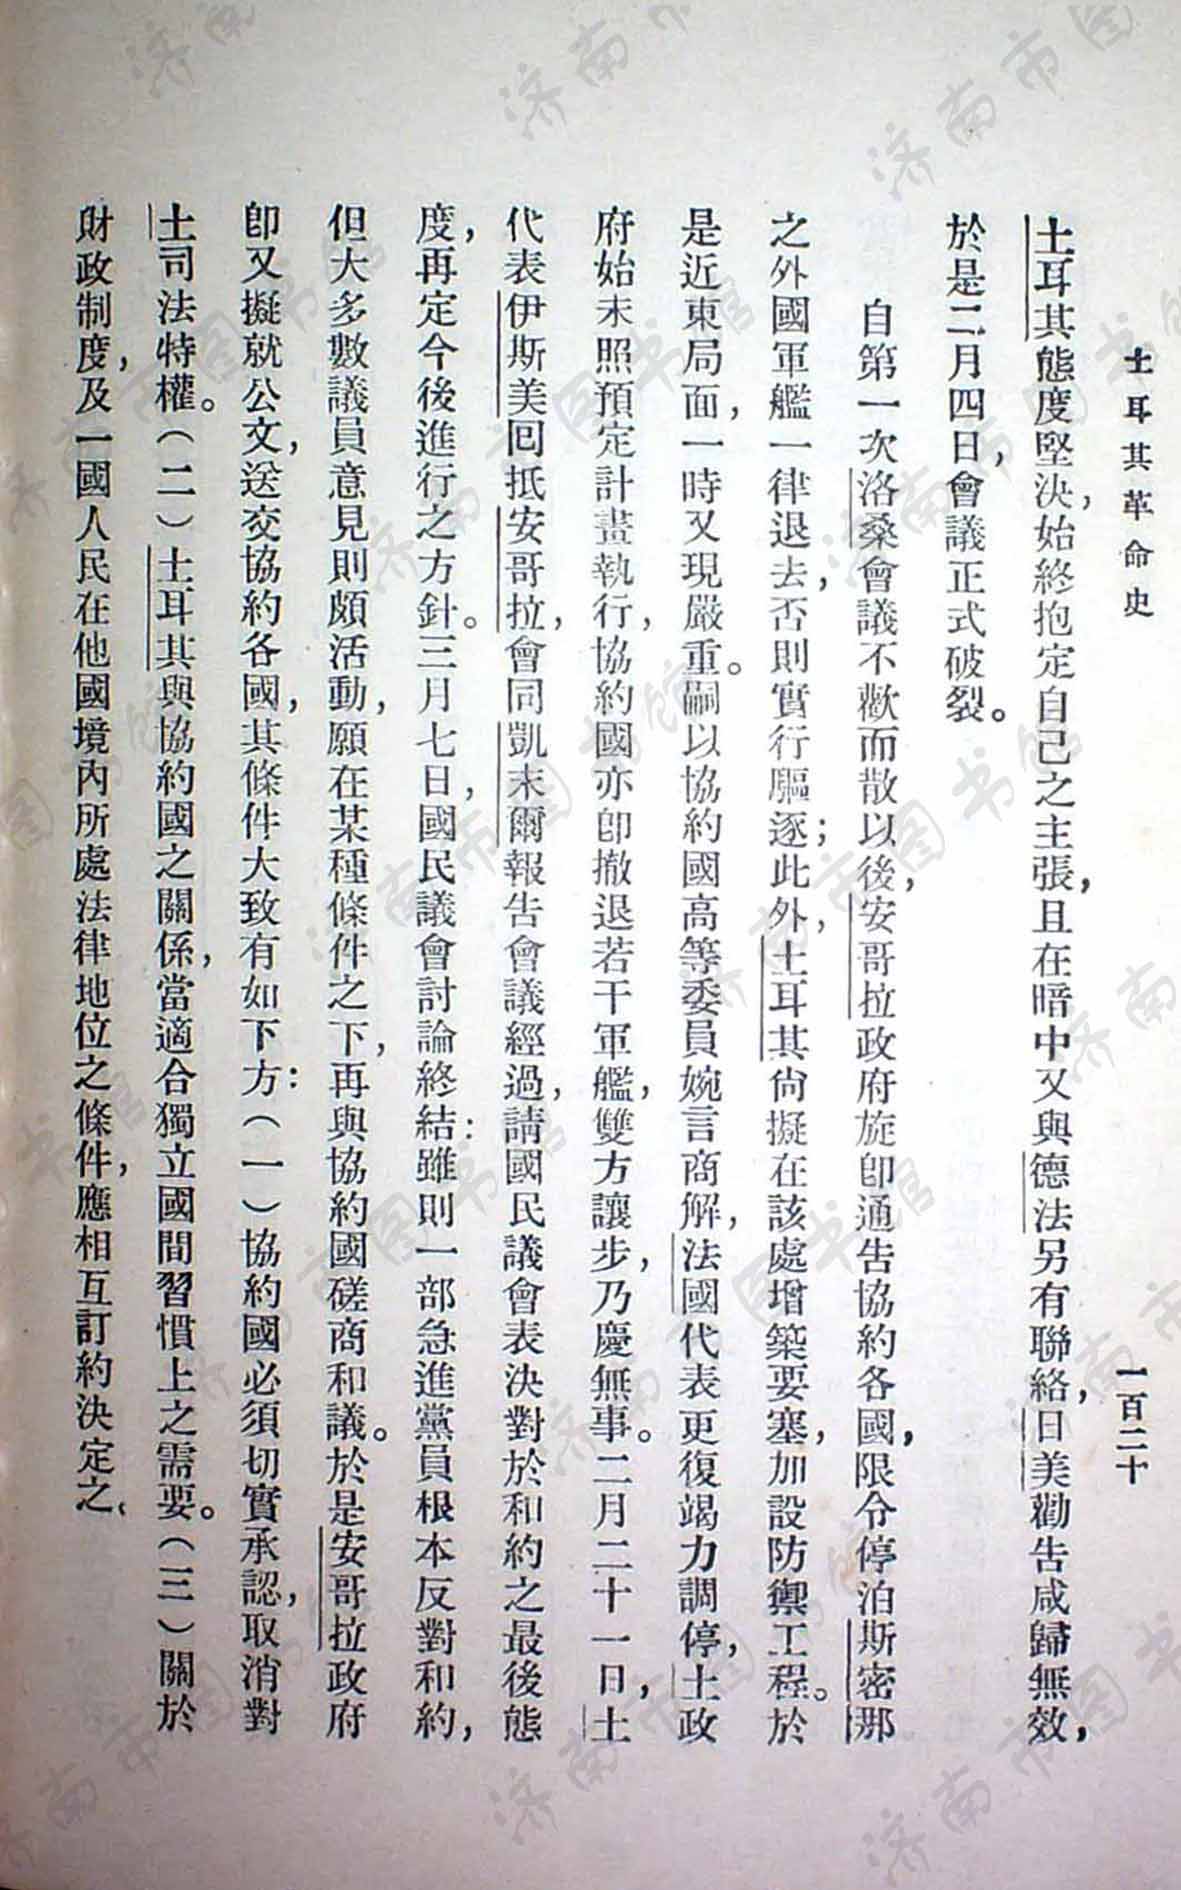 土耳其革命史
一百二十
土耳其態度堅決，始終抱定自己之主張，且在暗中又與德法另有聯絡，日美勸告咸歸無效，
於是二月四日，會議正式破裂。
自第一次洛桑會議不歡而散以後，安哥拉政府旋卽通告協約各國，限令停泊斯密那
之外國軍艦一律退去，否則實行驅逐；此外，土耳其尙擬在該處增築要塞，加設防禦工程。於
是近東局面，一時又現嚴重。嗣以協約國高等委員婉言商解，法國代表更復竭力調停，土政
府始未照預定計畫執行，協約國亦卽撤退若干軍艦，雙方讓步，乃慶無事。二月二十一日，土
代表伊斯美回抵安哥拉，會同凱末爾報告會議經過，請國民議會表決對於和約之最後態
度，再定今後進行之方針。三月七日，國民議會討論終結：雖則一部急進黨員根本反對和約，
但大多數議員意見則頗活動，願在某種條件之下，再與協約國磋商和議。於是安哥拉政府
卽又擬就公文，送交協約各國，其條件大致有如下方：（一）協約國必須切實承認，取消對
土司法特權。（二）土耳其與協約國之關係，當適合獨立國間習慣上之需要。（三）關於
財政制度，及一國人民在他國境內所處法律地位之條件，應相互訂約決定之、
济南市图书馆